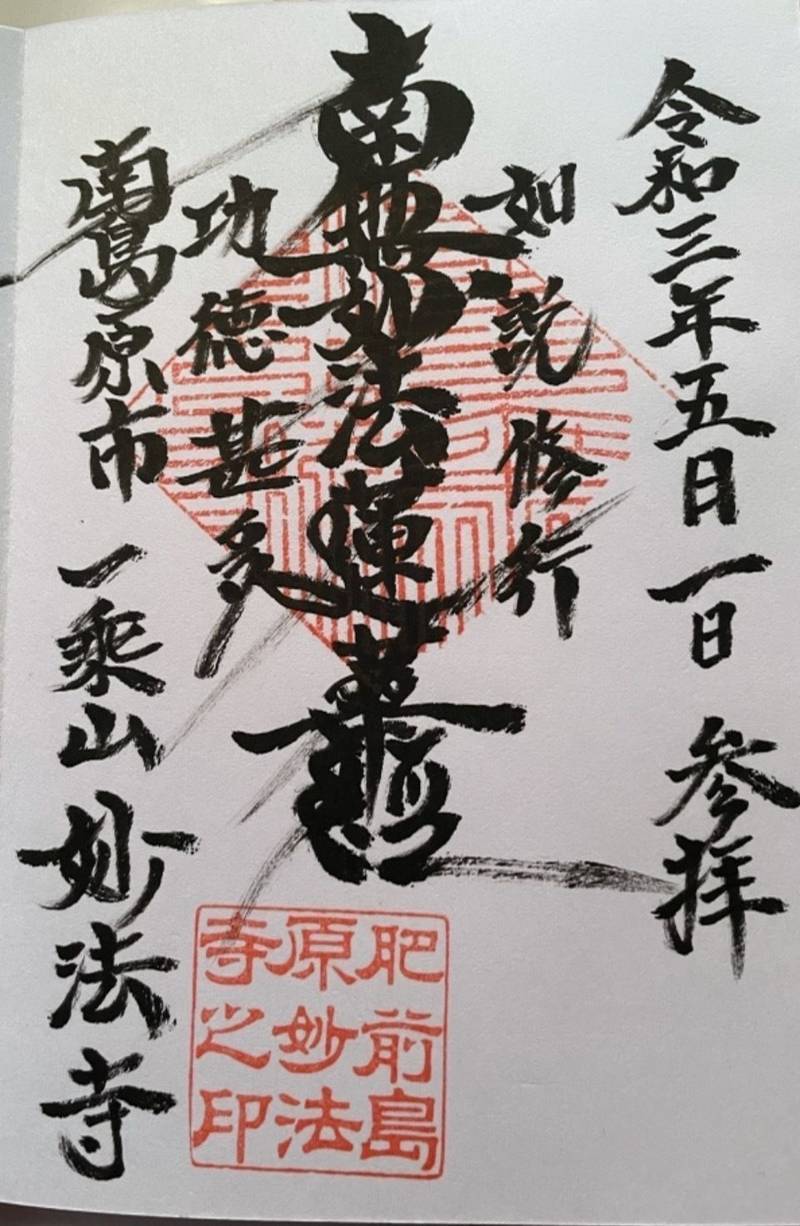 令和三年五日一日 参拝
如説修行
南無妙法蓮華経
功徳甚多
南島原市 一乗山 妙法寺
肥前島
原妙法
寺之印